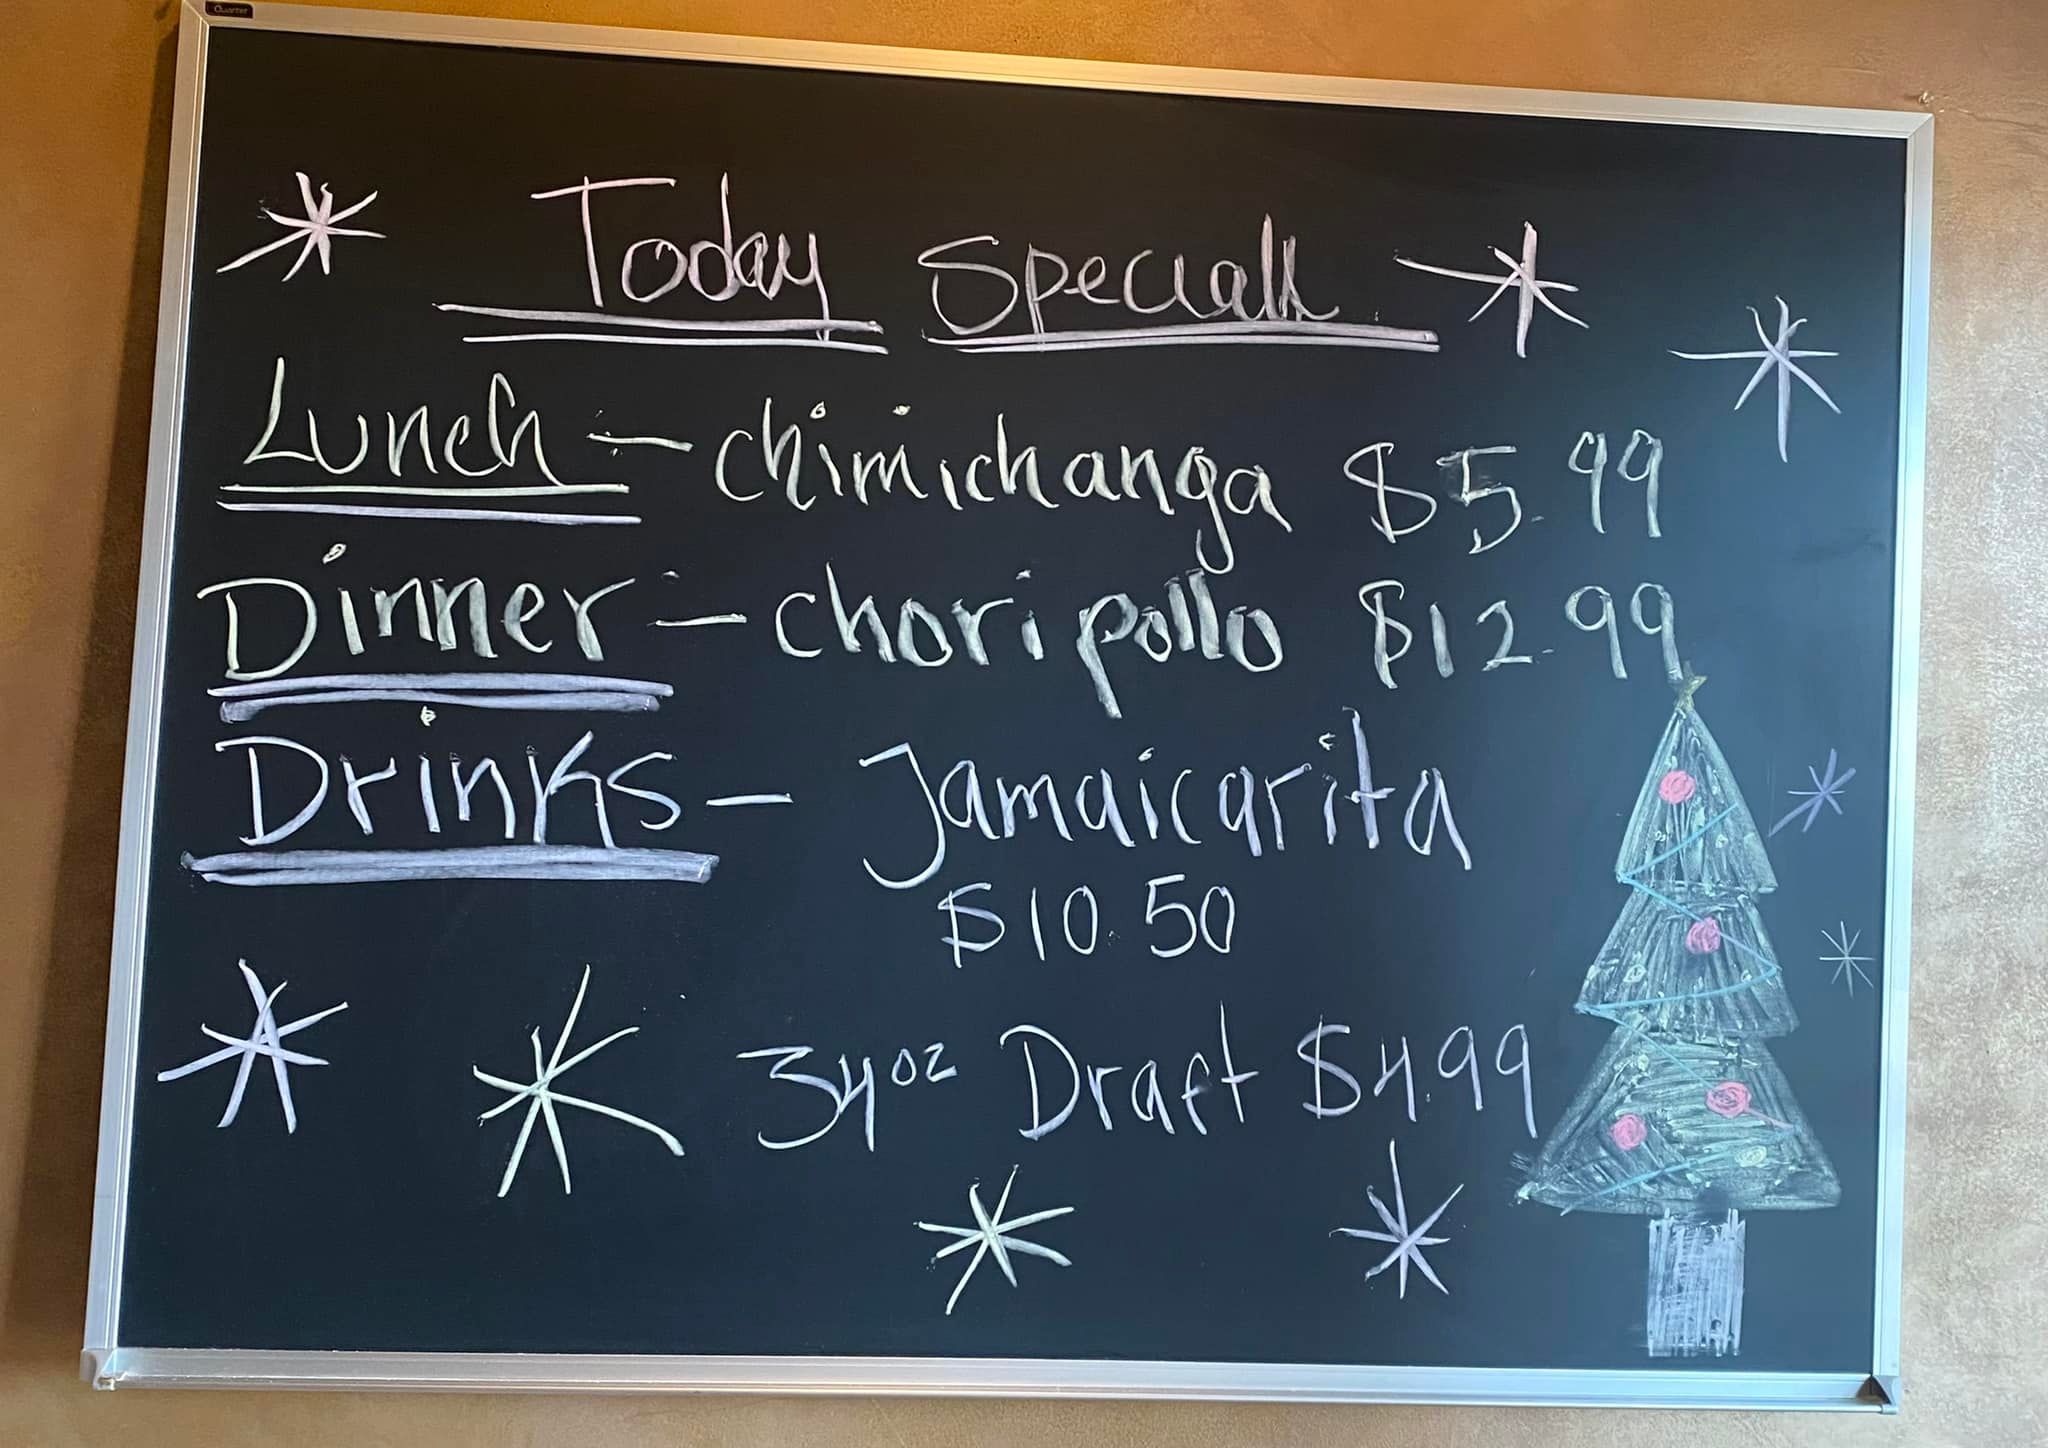 Quartet
Today Speciall
Lunch - chimichanga $5.99
Dinner - choripollo $12.99
Drinks - Jamaicarita
$10.50
34oz Draft $4.99